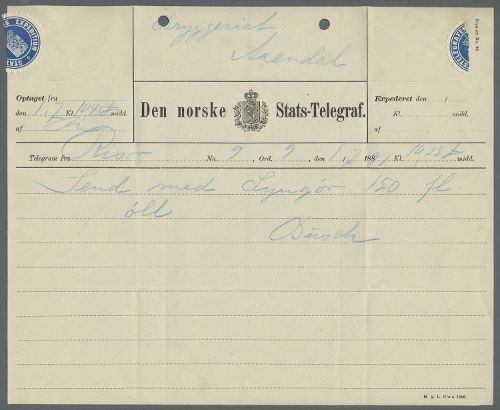 Bryggeriet
Arendal
Blanket No. 64
STATS EXPEDITION
Optaget fra
den 1/7 Kl. 10,45 f midd.
af
Den norske Stats-Telegraf.
Expederet den /
Kl. midd.
af
Telegram fra Risør No. 9 Ord. 9 den 1/7 1891 Kl. 10,25 f midd.
Send med Lyngör 150 fl.
öll
Busch